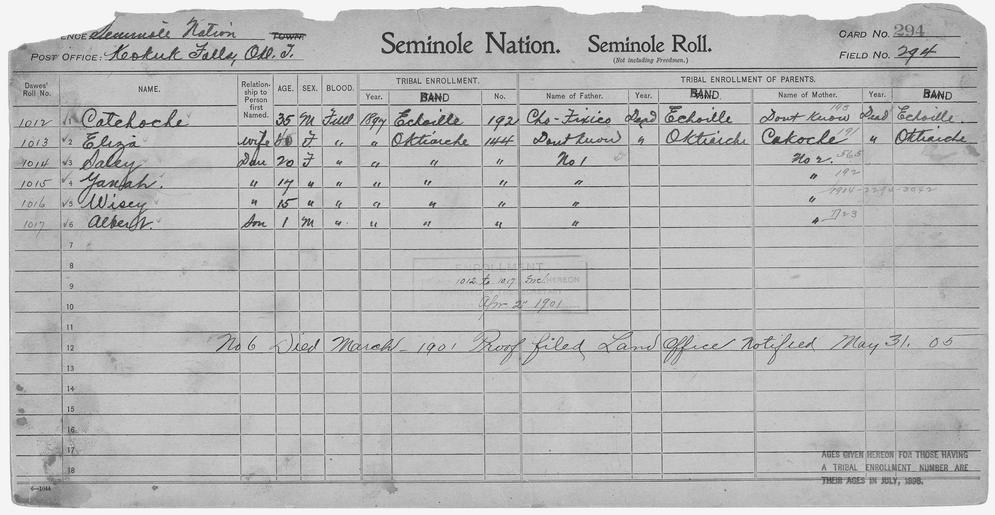 ENCE Seminole Nation TOWN. Seminole Nation. Seminole Roll. CARD NO. 294
POST OFFICE: Keokuk Falls, Okl. T. (Not including Freedmen.) FIELD NO. 294
Dawes' Roll No. NAME. Relationship to Person first Named. AGE. SEX. BLOOD. TRIBAL ENROLLMENT. TRIBAL ENROLLMENT OF PARENTS.
Year. BAND No. Name of Father. Year. BAND Name of Mother. Year. BAND
1012 1 Catchoche 35 M Full 1897 Echoille 192 Cho-Fixico Dead Echoille Dont know 193 Dead Echoille
1013 2 Eliza wife F " " Oktiarche 144 Dont know " Oktiarche Cakoche 191 " Oktiarche
1014 3 Daley Dau 20 F " " " " No 1 No 2. 565
1015 4 " 17 " " " " " " " 192
1016 5 Wisey " 15 " " " " " " "
1017 6 Albert. Son 1 M " " " " " "
7
8
9 ENROLLMENT 1012 to 1017 Inc. HEREON
10 Apr 2 1901
11
12 No 6 Died March - 1901 Proof filed Land Office Notified May 31, 05
13
14
15
16
17 AGES GIVEN HEREON FOR THOSE HAVING
18 A TRIBAL ENROLLMENT NUMBER ARE
THEIR AGES IN JULY, 1898.
6-1044